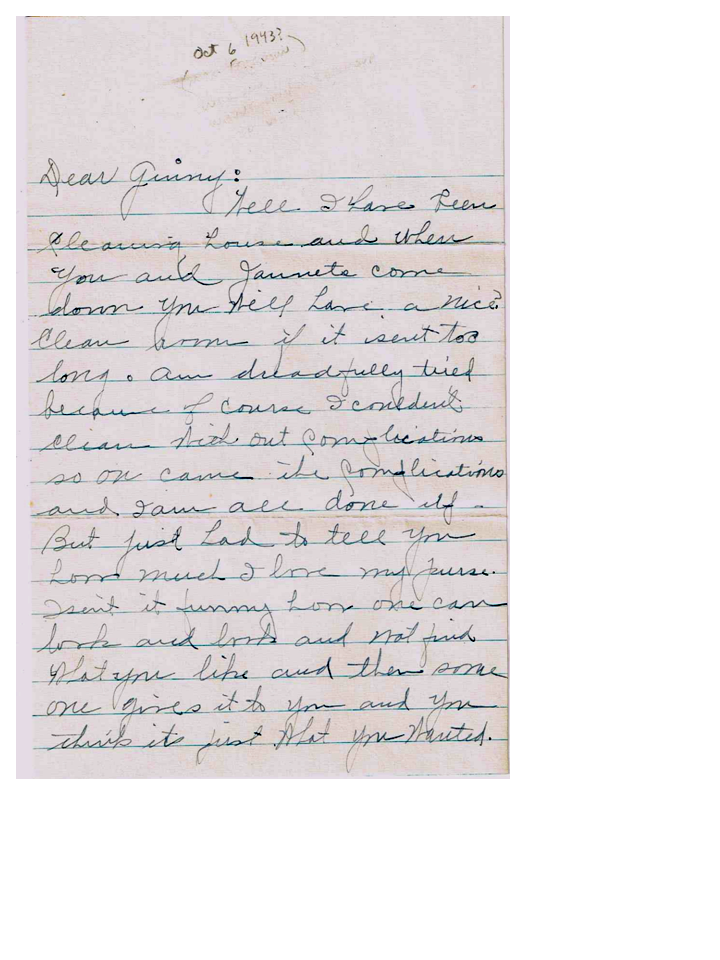 Oct 6 1943?
Dear Ginny:
Well I have been
cleaning house and when
you and Jannete come
down you will have a nice
clean room if it isent too
long. am dreadfully tired
because of course I couldent
clean with out complications
so on came the complications
and I am all done up -
But just had to tell you
how much I love my purse.
Isent it funny how one can
look and look and not find
what you like and then some
one gives it to you and you
think its just what you wanted.